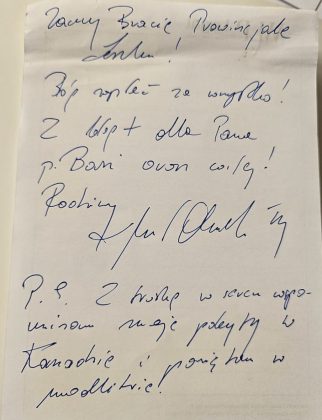 Zacny Bracie, Prowincjale
Leszku!
Bóg zapłać za wszystko!
Z błog + dla Pana
p. Basi oraz całej
Rodziny
P.S. Z w sercu wspo-
minam moje pobyty w
Kanadzie i pamiętam w
modlitwie!